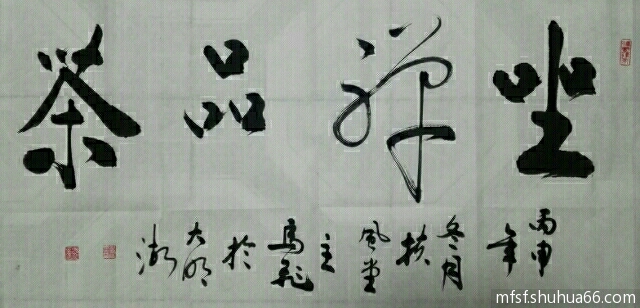 坐禅品茶
丙申
年
冬月
扶
風堂
主
馬飛
於
大明
湖
mfsf.shuhua66.com